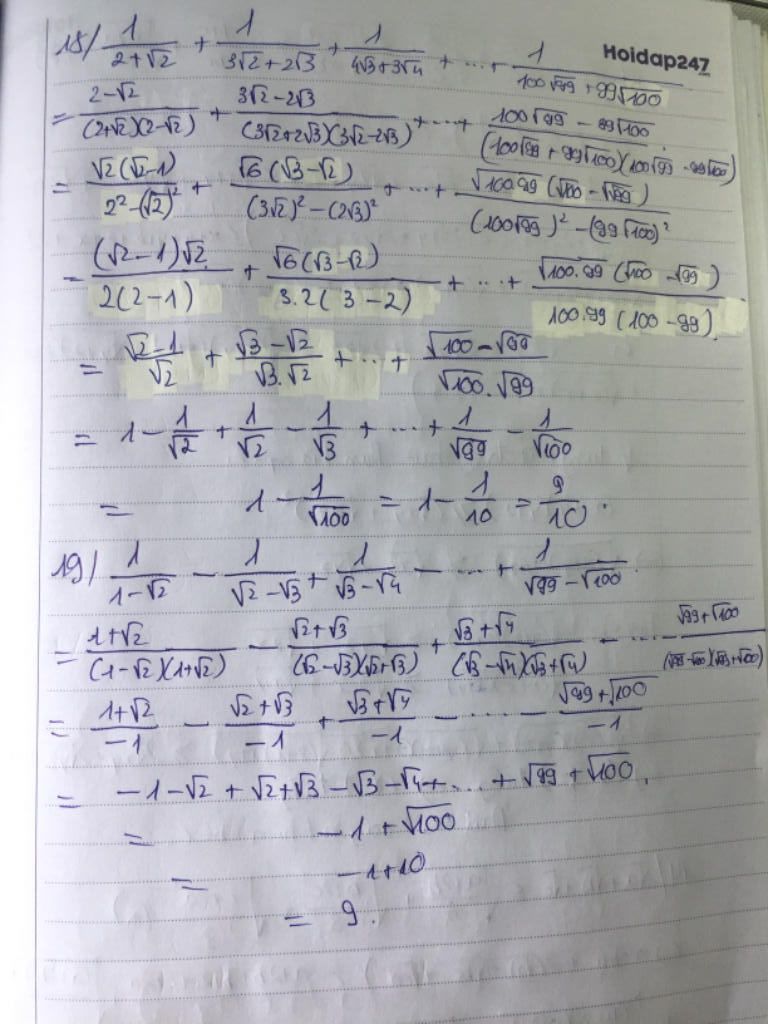 18/ 1/(2+√2) + 1/(3√2+2√3) + 1/(4√3+3√4) + ... + 1/(100√99+99√100)
Hoidap247
= (2-√2)/((2+√2)(2-√2)) + (3√2-2√3)/((3√2+2√3)(3√2-2√3)) + ... + (100√99-99√100)/((100√99+99√100)(100√99-99√100))
= √2(√2-1)/(2²-(√2)²) + √6(√3-√2)/((3√2)²-(2√3)²) + ... + √100.99(√100-√99)/((100√99)²-(99√100)²)
= (√2-1)√2/(2(2-1)) + √6(√3-√2)/(3.2(3-2)) + ... + √100.99(√100-√99)/(100.99(100-99)).
= (√2-1)/√2 + (√3-√2)/(√3.√2) + ... + (√100-√99)/(√100.√99)
= 1 - 1/√2 + 1/√2 - 1/√3 + ... + 1/√99 - 1/√100
= 1 - 1/√100 = 1 - 1/10 = 9/10.
19/ 1/(1-√2) - 1/(√2-√3) + 1/(√3-√4) - ... + 1/(√99-√100).
= (1+√2)/((1-√2)(1+√2)) - (√2+√3)/((√2-√3)(√2+√3)) + (√3+√4)/((√3-√4)(√3+√4)) - ... - (√99+√100)/((√99-√100)(√99+√100))
= (1+√2)/(-1) - (√2+√3)/(-1) + (√3+√4)/(-1) - ... - (√99+√100)/(-1)
= -1-√2+√2+√3-√3-√4+...+√99+√100.
= -1+√100
= -1+10
= 9.